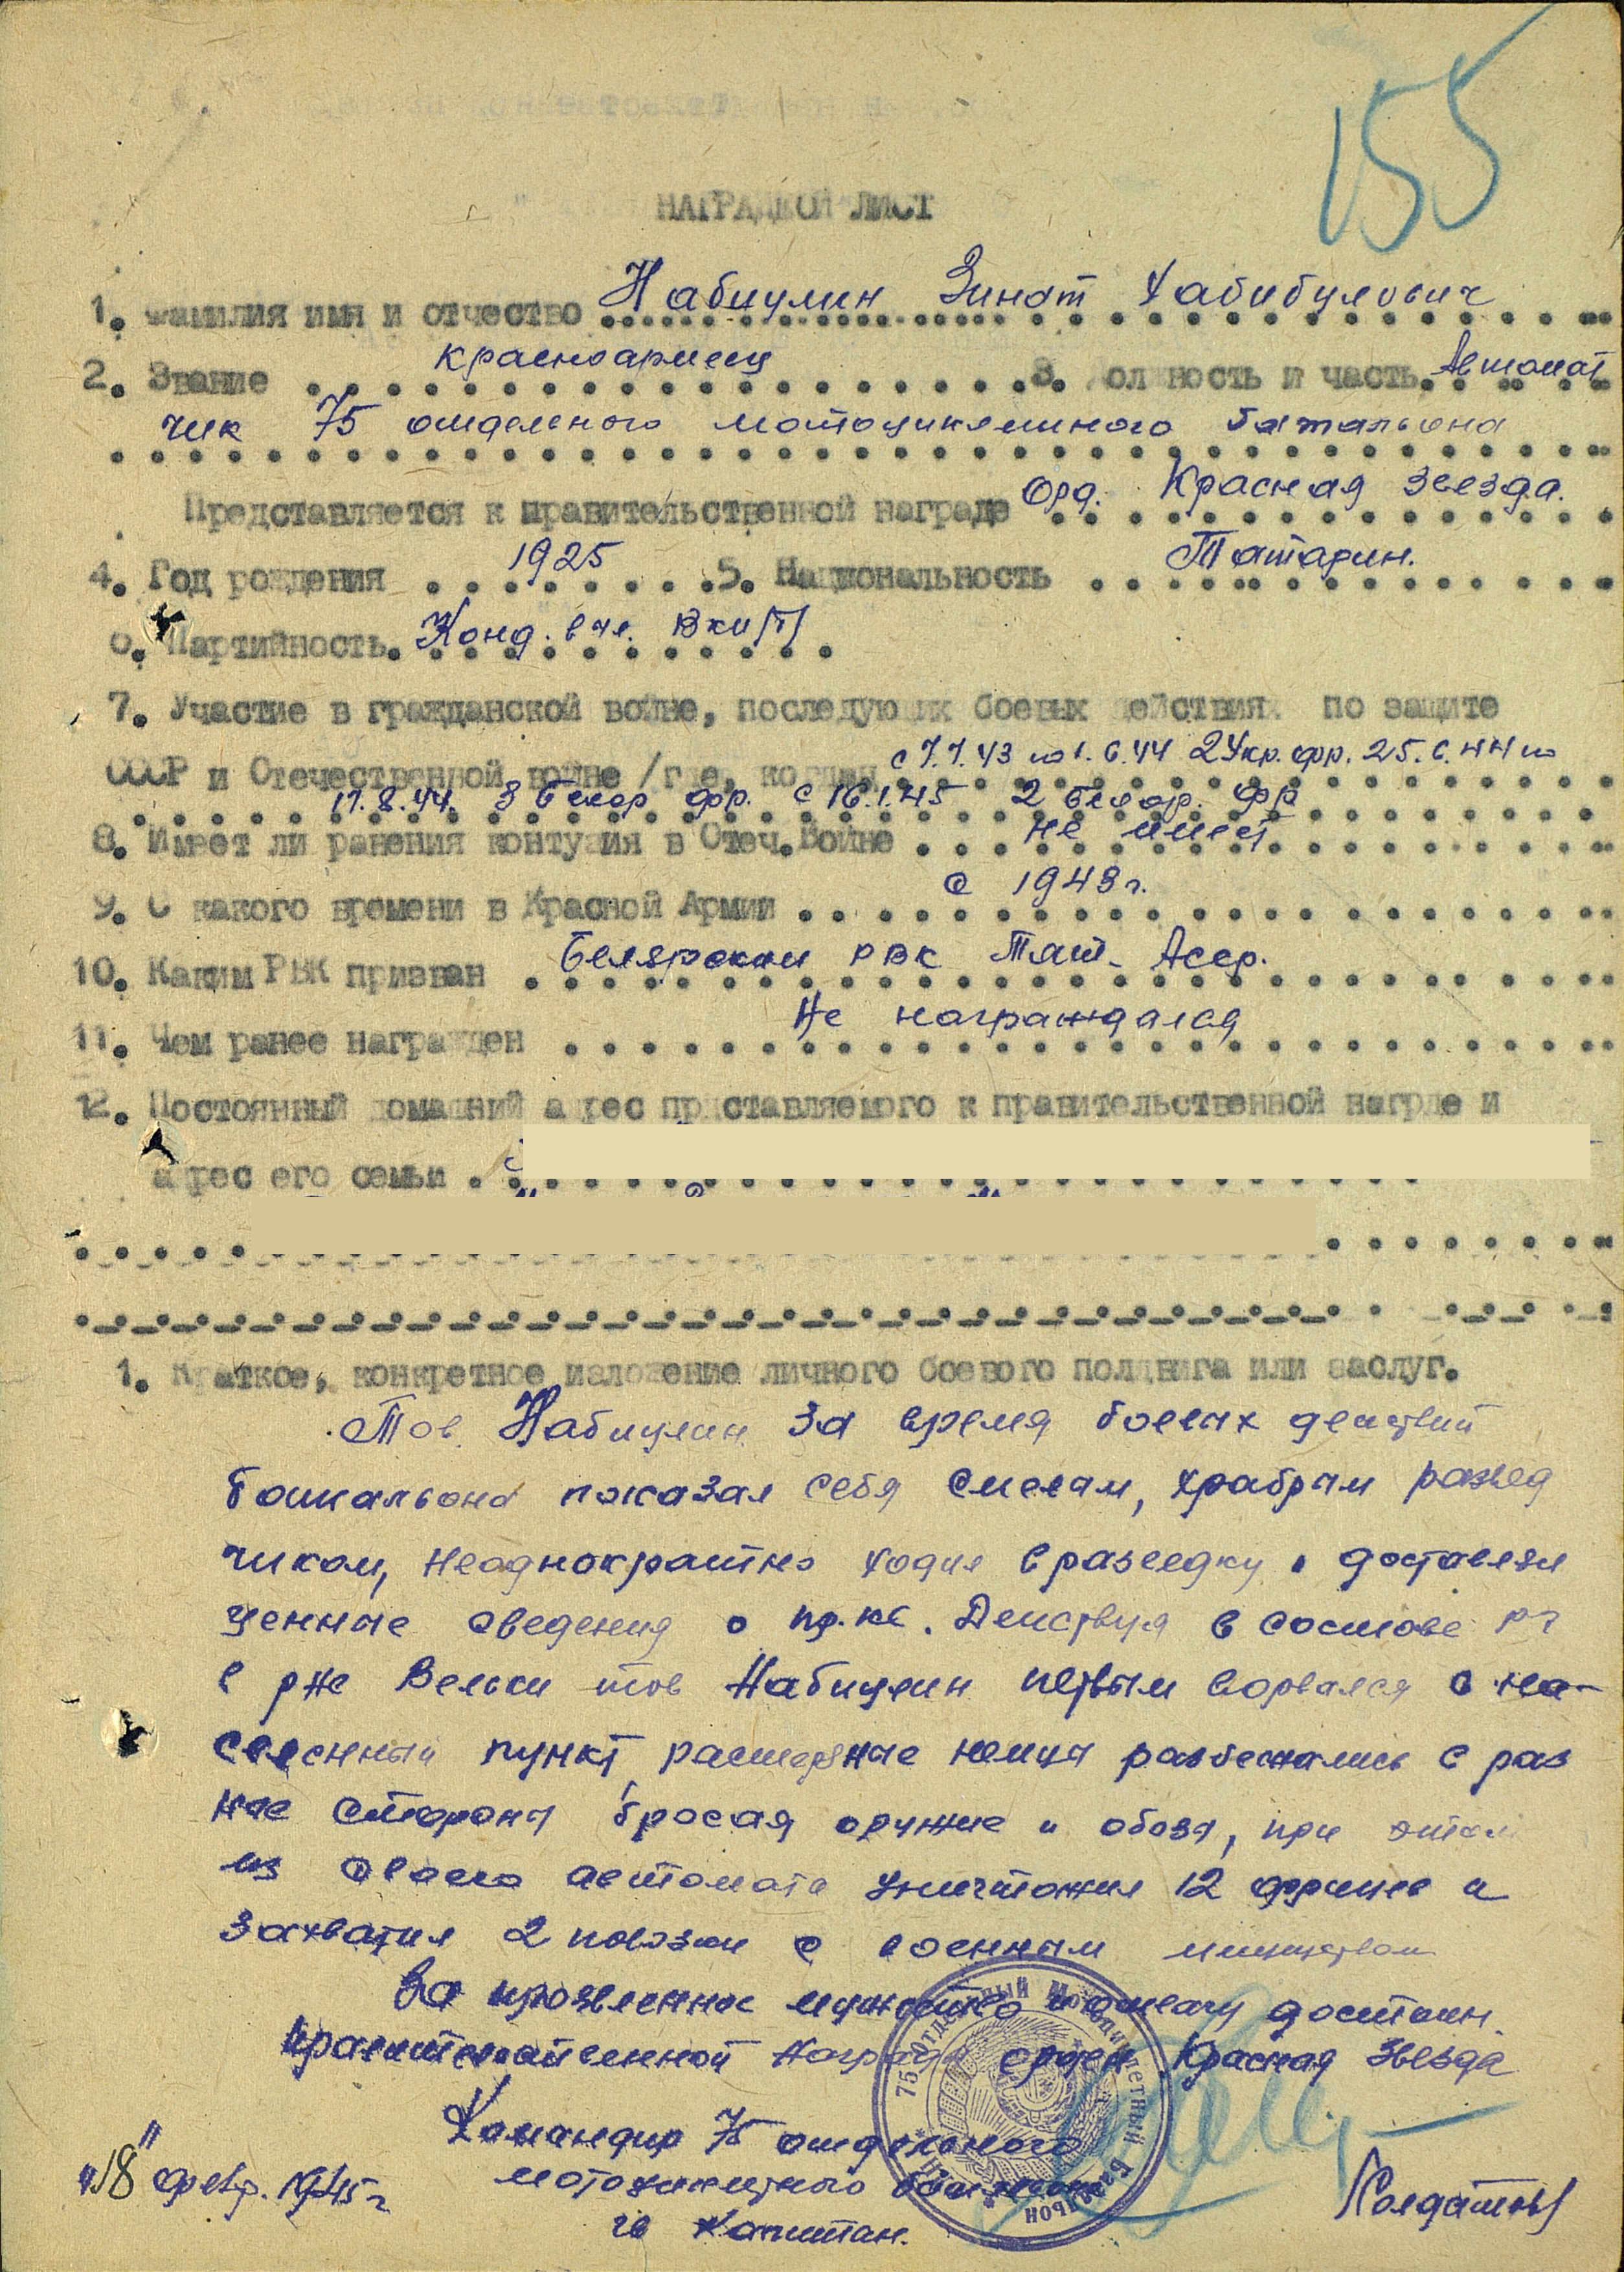 155
НАГРАДНОЙ ЛИСТ
1. Фамилия имя и отчество Набиулин Зинат Хабибулович
2. Звание красноармеец 3. Должность и часть Автомат
чик 75 отдельного мотоциклетного батальона
Представляется к правительственной награде Орд. Красная звезда.
4. Год рождения 1925 5. Национальность Татарин.
6. Партийность. Канд. в чл. ВКП/б/
7. Участие в гражданской войне, последующих боевых действиях по защите
СССР и Отечественной войне /где, когда/ с 7.7.43 по 1.6.44 2 Укр. фр. 25.6.44 по
17.8.44. 3 Белор фр. с 16.1.45 2 Белор. фр
8. Имеет ли ранения контузия в Отеч.Войне не имеет
9. С какого времени в Красной Армии с 1943 г.
10. Каким РВК призван Белярский РВК Тат. Асср.
11. Чем ранее награжден Не награждался
12. Постоянный домашний адрес приставляемого к правительственной нагрде и
адрес его семьи
1. Краткое, конкретное изложение личного боевого подвига или заслуг.
Тов. Набиулин за время боевых действий
батальона показал себя смелым, храбрым развед
чиком, неоднократно ходил в разведку, доставлял
ценные сведения о пр-ке. Действуя в составе рг
в р-не Вельки тов Набиулин первым ворвался в на-
селенный пункт, растеряные немцы разбежались в раз
ные стороны бросая оружие и обозы, при этом
из своего автомата уничтожил 12 фрицев и
захватил 2 повозки с военным имуществом
За проявленное мужество и отвагу достоин
правительственной награды орден Красная Звезда
Командир 75 отдельного
мотоциклетного батальона
гв капитан.
/Солдатов/
"18" февр. 1945 г
75 Отдельный Мотоциклетный Батальон